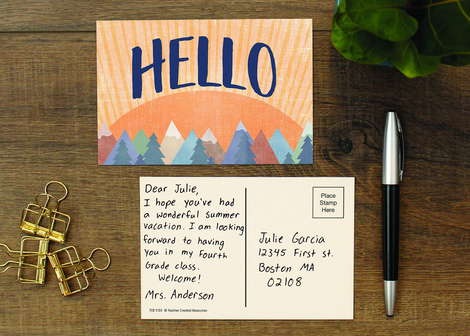 HELLO
Dear Julie,
I hope you've had
a wonderful summer
vacation. I am looking
forward to having
you in my fourth
grade class.
Welcome!
Mrs. Anderson
Place
Stamp
Here
Julie Garcia
12345 First St.
Boston MA
02108
© Teacher Created Resources